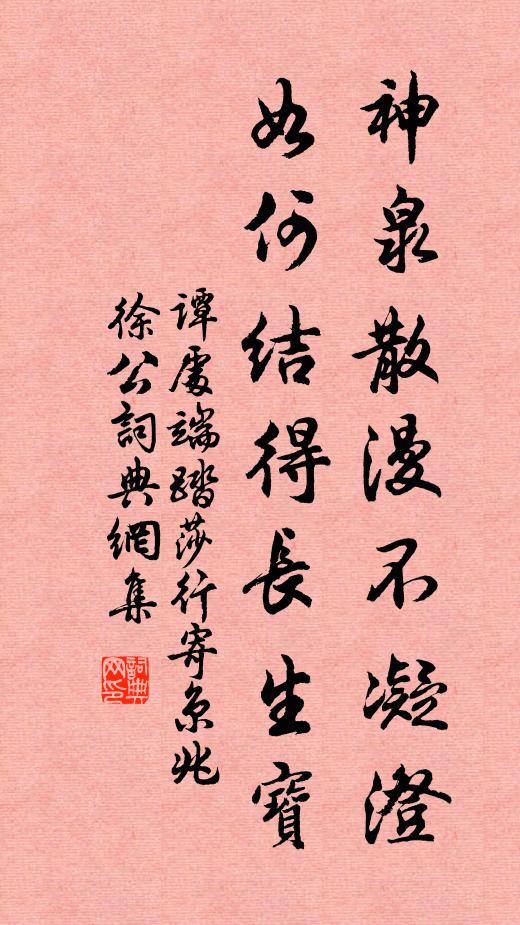 神泉散漫不凝澄
如何結得長生寶
譚處端踏莎行寄京兆
徐公詞典網集
詞典網印